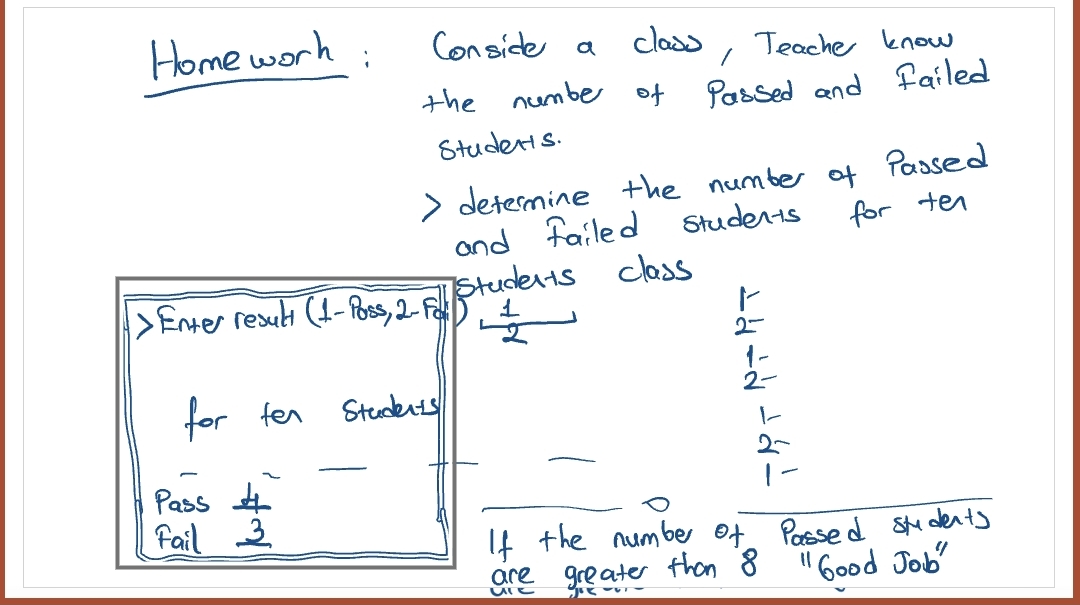 Homework : Conside a class, Teacher know
the number of Passed and Failed
Students.
> determine the number of Passed
and failed students for ten
students class
> Enter result (1-Pass, 2-Fai) 1
2
for ten Students
Pass 4
Fail 3
1-
2-
1-
2-
1-
2-
1-
If the number of Passed students
are greater than 8 "Good Job"